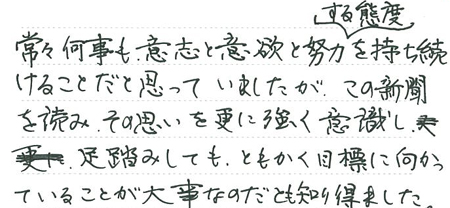 する態度
常々何事も、意志と意欲と努力を持ち続
けることだと思っていましたが、この新聞
を読み、その思いを更に強く意識し、
足踏みしても、ともかく目標に向かっ
ていることが大事なのだとも知り得ました。